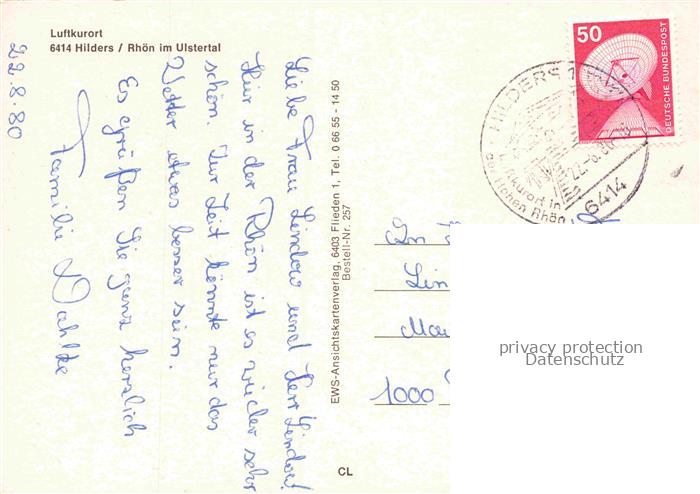 Luftkurort
6414 Hilders / Rhön im Ulstertal
22.8.80
Liebe Frau Lindow und Herr Lindow!
Hier in der Rhön ist es wieder sehr
schön. Zur Zeit könnte nur das
Wetter etwas besser sein.
Es grüßen Sie ganz herzlich
Familie Dahlke
EWS-Ansichtskartenverlag, 6403 Flieden 1, Tel. 0 66 55 - 14 50
Bestell-Nr. 257
CL
50
DEUTSCHE BUNDESPOST
HILDERS 1
22.-8.80
6414
Luftkurort in
der Hohen Rhön
An
Lin
Mar
1000
privacy protection
Datenschutz